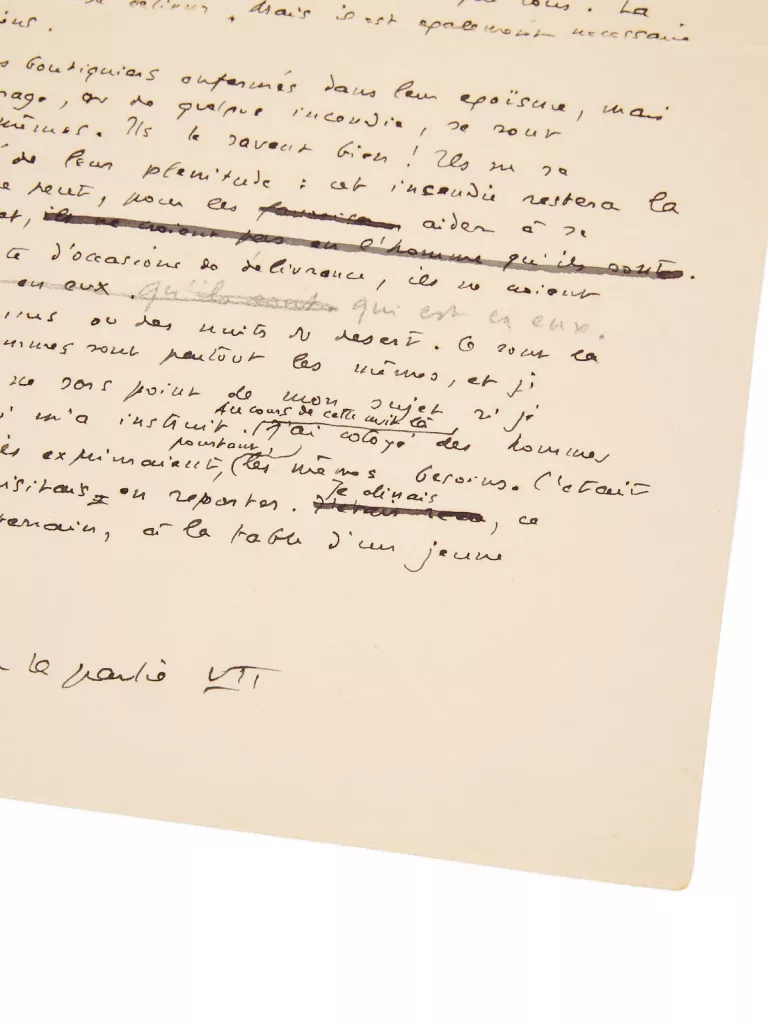 tous. La
délivrer. Mais il est également nécessaire
boutiquiers enfermés dans leur egoïsme, mais
, ou de quelque incendie, se sont
mêmes. Ils le savent bien ! Ils ne se
de leur plenitude : cet incendie restera la
peut, pour les favoriser aider à se
ils ne croient pas en l'homme qu'ils sont.
d'occasions de délivrance, ils ne croient
en eux. qu'ils sont qui est en eux.
ou des nuits du desert. Ce sont la
sont partout les mêmes, et si
ne sors point de mon sujet si je
Au cours de cette nuit là
m'a instruit. (J'ai cotoyé des hommes
pourtant
exprimaient, (les mêmes besoins. C'était
Je dinais
en reporter. , ce
, à la table d'un jeune
la partie VII